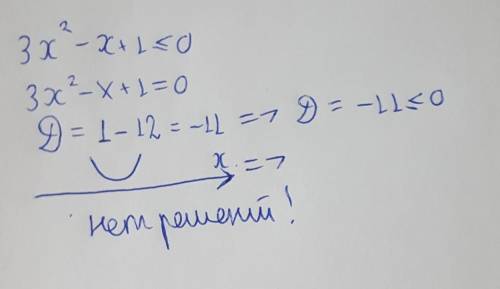 3x² - x + 1 ≤ 0
3x² - x + 1 = 0
D = 1 - 12 = -11 => D = -11 ≤ 0
x =>
нет решений!